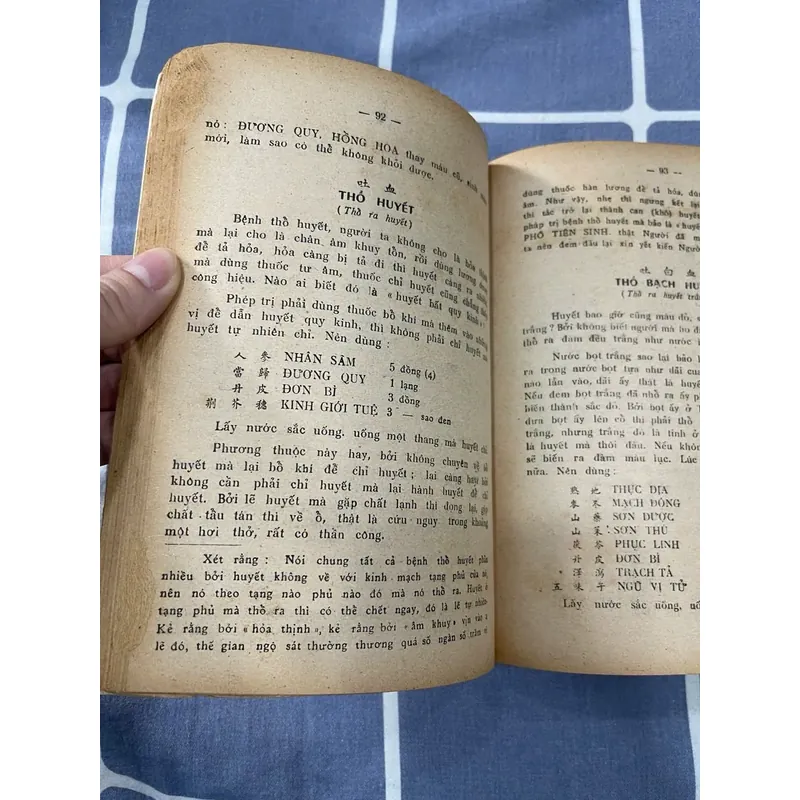 — 92 —
nó: ĐƯƠNG QUY, HỒNG HOA thay máu cũ, sinh
mới, làm sao có thể không khỏi được.
吐 血
THỔ HUYẾT
(Thổ ra huyết)
Bệnh thổ huyết, người ta không cho là hỏa thịnh
mà lại cho là chân âm khuy tổn, rồi dùng lương dược
để tả hỏa, hỏa càng bị tả đi thì huyết càng ra nhiều
mà dùng thuốc tư âm, thuốc chỉ huyết cũng chẳng
công hiệu. Nào ai biết đó là «huyết bất quy kinh»
Phép trị phải dùng thuốc bổ khí mà thêm vào
vị để dẫn huyết quy kinh, thì không phải chỉ huyết mà
huyết tự nhiên chỉ. Nên dùng:
人 參 NHÂN SÂM 5 đồng (4)
當 歸 ĐƯƠNG QUY 1 lạng
丹 皮 ĐƠN BÌ 3 đồng
荆 芥 穗 KINH GIỚI TUỆ 3 — sao đen
Lấy nước sắc uống. uống một thang mà huyết chỉ.
Phương thuốc này hay, bởi không chuyên về chỉ
huyết mà lại bổ khí để chỉ huyết; lại càng hay hơn
không cần phải chỉ huyết mà lại hành huyết để chỉ
huyết. Bởi lẽ huyết mà gặp chất lạnh thì đọng lại, gặp
chất tẩu tán thì về ồ, thật là cứu nguy trong khoảng
một hơi thở, rất có thần công.
Xét rằng: Nói chung tất cả bệnh thổ huyết phần
nhiều bởi huyết không về với kinh mạch tạng phủ của nó,
nên nó theo tạng nào phủ nào đó mà nó thổ ra. Huyết ở
tạng phủ mà thổ ra thì có thể chết ngay, đó là lẽ tự nhiên.
Kẻ rằng bởi «hỏa thịnh», kẻ rằng bởi «âm khuy» vịn vào
lẽ đó, thế gian ngộ sát thường thường quá số ngàn số trăm
— 93 —
dùng thuốc hàn lương để tả hỏa,
âm. Như vậy, nhẹ thì ngưng kết lại
thì tắc trở lại thành can (khô) huyết
pháp trị bệnh thổ huyết mà bảo là «huyết
PHÓ TIÊN SINH. thật Người đã
ta nên đem đầu lại xin yết kiến Người
吐 白 血
THỔ BẠCH
(Thổ ra huyết
Huyết bao giờ cũng màu đỏ,
trắng? Bởi không biết người mà ho
thổ ra đàm đều trắng như nước
Nước bọt trắng sao lại bảo
ra trong nước bọt tựa như dãi
nào lẫn vào, dãi ấy thật là huyết
Nếu đem bọt trắng đã nhổ ra ấy
biến thành sắc đỏ. Bởi bọt ấy ở
đưa bọt ấy lên cổ thì phải thổ
trắng, nhưng trắng đó là tinh ở
là huyết mà thôi đâu. Nếu không
sẽ biến ra đàm màu lục. Lúc
nữa. Nên dùng:
熟 地 THỤC ĐỊA
麥 冬 MẠCH ĐÔNG
山 藥 SƠN DƯỢC
山 茱 SƠN THÙ
茯 苓 PHỤC LINH
丹 皮 ĐƠN BÌ
澤 瀉 TRẠCH TẢ
五 味 子 NGŨ VỊ TỬ
Lấy nước sắc uống,